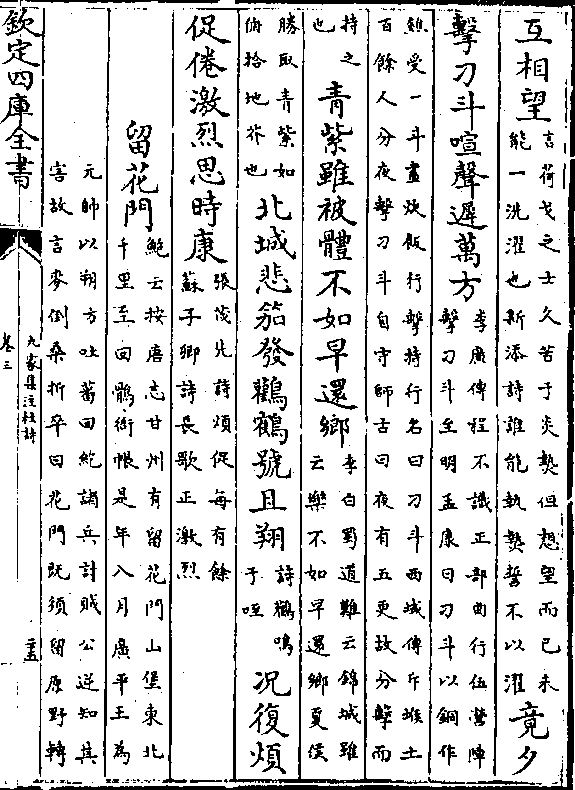 互相望
言荷戈之士久苦于炎熱但想望而已未
能一洗濯也斯添詩誰能執熱誓不以濯
竟夕
擊刁斗喧聲連萬方
李廣傳程不識正部曲行伍營陣
擊刁斗至明孟康曰刁斗以銅作
鐎受一斗晝炊飯行擊持行名曰刁斗西域傳斥堠士
百餘人分夜擊刁斗自守師古曰夜有五更故分擊而
持之
也
青紫雖被體不如早還鄉
李白蜀道難云錦城雖
云樂不如早還鄉夏侯
勝取青紫如
俯拾地芥也
北城悲笳發鸛鶴號且翔
詩鸛鳴
于垤
況復煩
促倦激烈思時康
張茂先詩煩促每有餘
蘇子卿詩長歌正激烈
留花門
鮑云按唐志甘州有留花門山堡東北
千里至回鶻衙帳是年八月廣平王為
元帥以朔方吐蕃回紇諸兵討賊公逆知其
害故言麥倒桑折卒曰花門既須留原野轉
欽定四庫全書
九家集注杜詩
卷三
二五